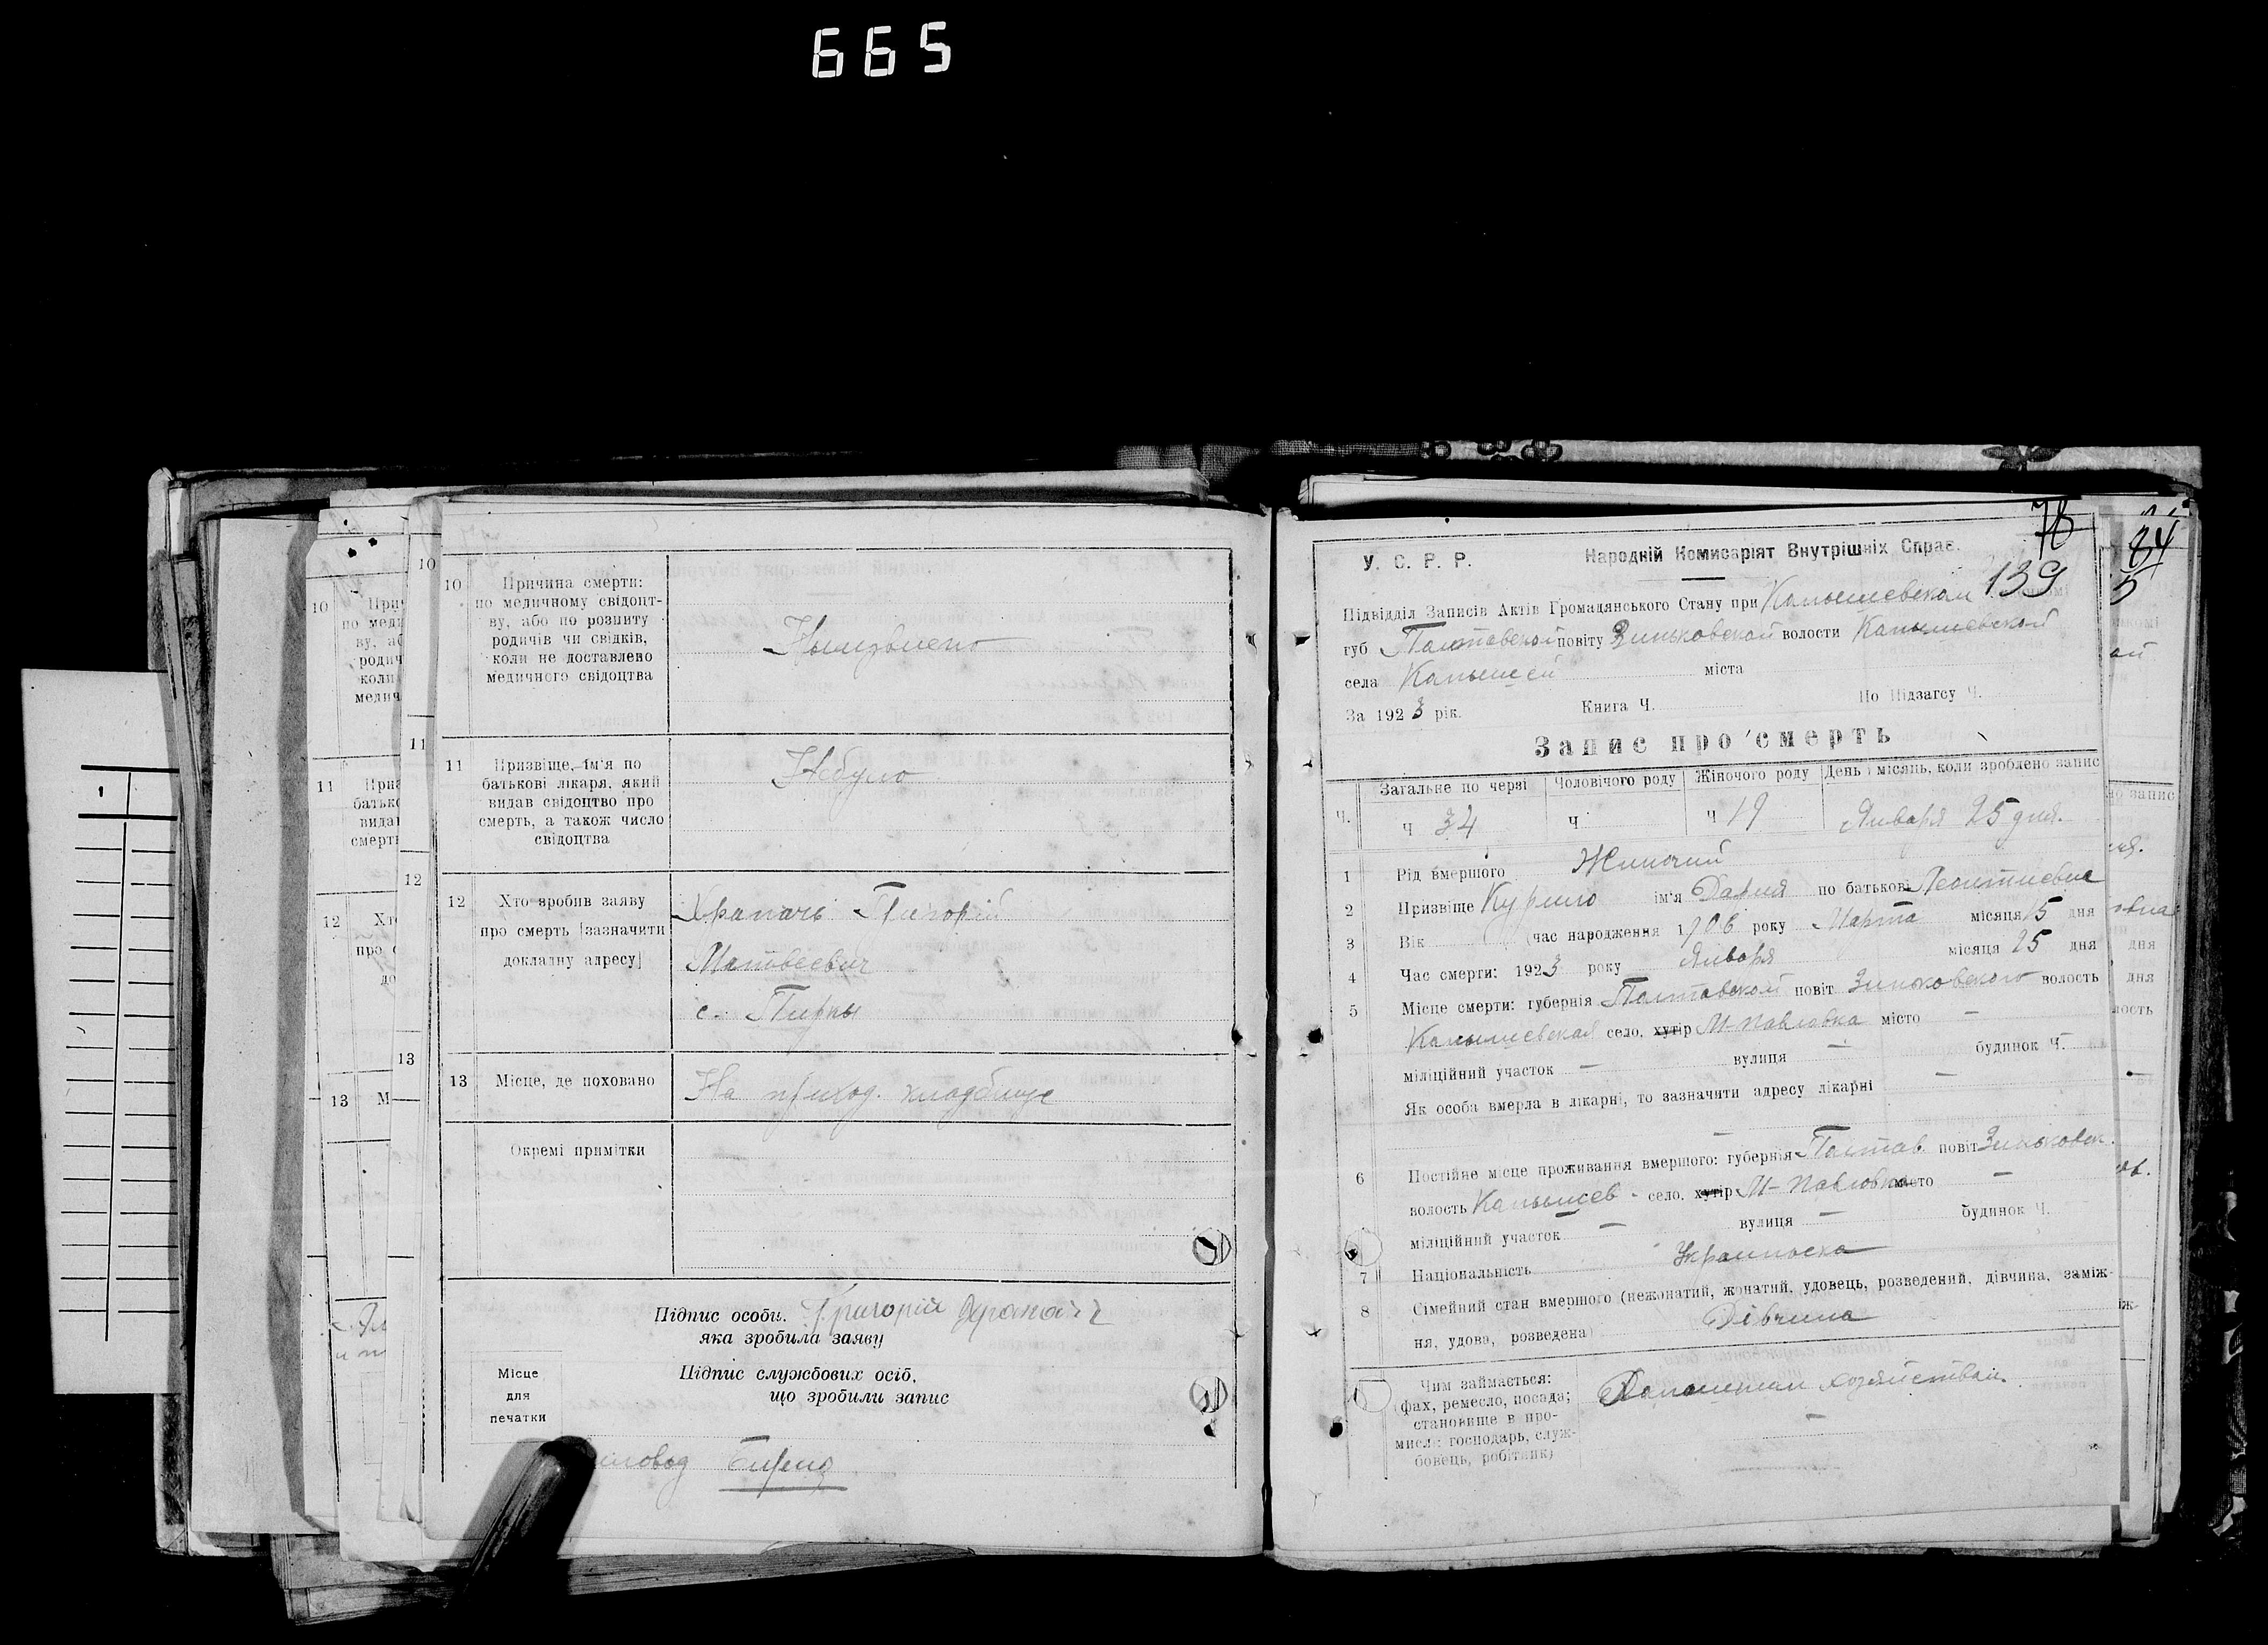 665
10
Причина смерти:
по медичному свідоцт-
ву, або по розпиту
родичів чи свідків,
коли не доставлено
медичного свідоцтва
11
Призвіще, ім'я по
батькові лікаря, який
видав свідоцтво про
смерть, а також число
свідоцтва
Небуло
12
Хто зробив заяву
про смерть (зазначити
докладну адресу)
Храпачь Григорій
Матвеевич
с.
13
Місце, де поховано
На приход. кладбище
Окремі примітки
Підпис особи,
яка зробила заяву
Григорій Храпачь
Підпис службових осіб,
що зробили запис
Місце
для
печатки
78
84
У. С. Р. Р. Народній Комисаріят Внутрішніх Справ.
139
Підвідділ Записів Актів Громадянського Стану при
губ Полтавской повіту Зиньковской волости
села міста
За 1923 рік. Книга Ч. По Підзагсу Ч.
Запис про смерть
Ч. Загальне по черзі Чоловічого роду Жіночого роду День і місяць, коли зроблено запис
Ч 34 Ч Ч 19 Января 25 дня.
1 Рід вмершого Жиночий
2 Призвіще Курило ім'я Дария по батькові Леонтиевна
3 Вік (час народження 1906 року Марта місяця 15 дня
4 Час смерти: 1923 року Января місяця 25 дня
5 Місце смерти: губернія Полтавской повіт Зиньковского волость
село, хутір М-Павловка місто —
міліційний участок — вулиця — будинок Ч.
Як особа вмерла в лікарні, то зазначити адресу лікарні —
—
6 Постійне місце проживання вмершого: губернія Полтав. повіт Зиньковск.
волость село, хутір М-Павловка місто —
міліційний участок — вулиця — будинок Ч.
7 Національність Украинська
8 Сімейний стан вмершого (нежонатий, жонатий, удовець, розведений, дівчина, заміж-
ня, удова, розведена) Дівчина
Чим займається:
(фах, ремесло, посада;
становище в про-
мислі: господарь, служ-
бовець, робітник)
хозяйством
—